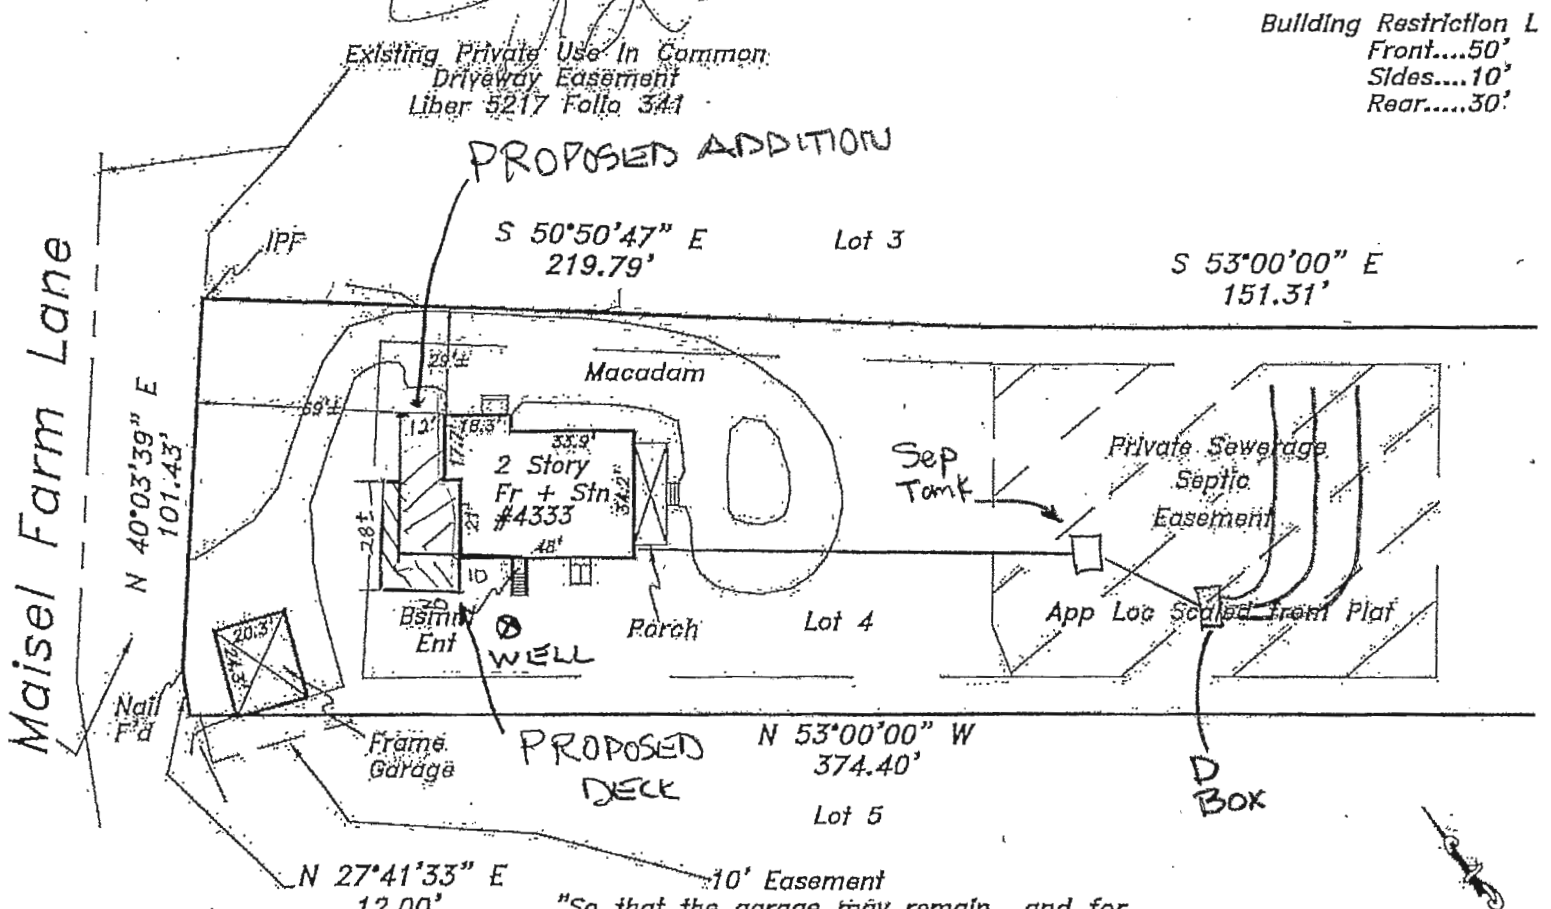 Building Restriction L
Front....50'
Sides....10'
Rear.....30'
Existing Private Use In Common
Driveway Easement
Liber 5217 Folio 341
PROPOSED ADDITION
IPF
S 50°50'47" E
219.79'
Lot 3
S 53°00'00" E
151.31'
Maisel Farm Lane
N 40°03'39" E
101.43'
29'±
Macadam
12'
18.3'
33.9'
2 Story
Fr + Stn
#4333
34.2'
28'±
21'
48'
10
20
Bsmnt
Ent
WELL
Porch
Lot 4
Sep
Tank
Private Sewerage
Septic
Easement
App Loc Scaled from Plat
20.3'
Nail
F'd
Frame
Garage
PROPOSED
DECK
N 53°00'00" W
374.40'
D
Box
Lot 5
N 27°41'33" E
12.00'
10' Easement
"So that the garage may remain, and for